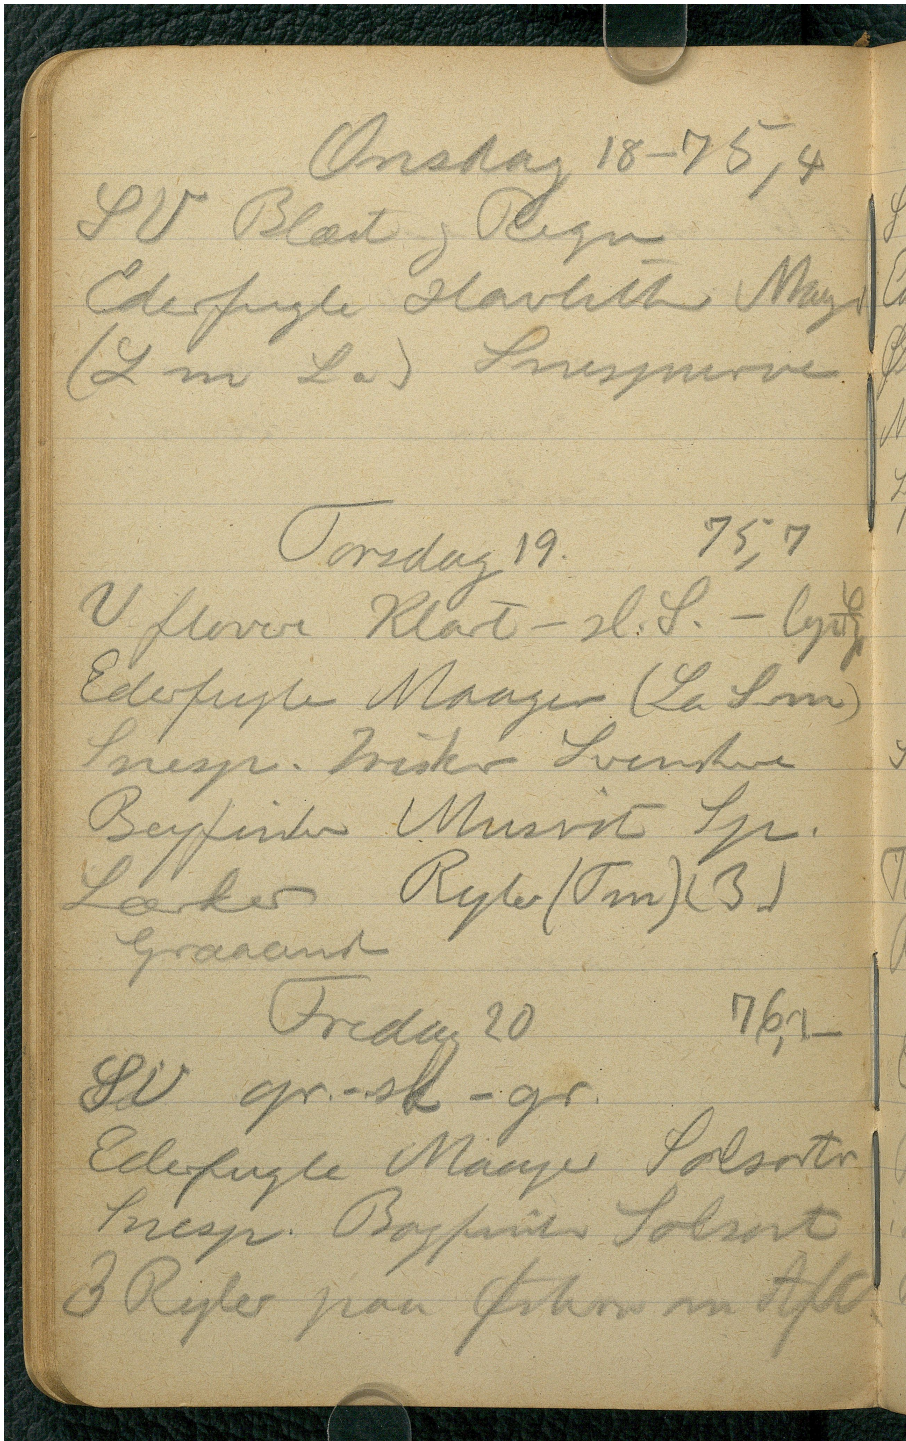 Onsdag 18-75,4
SV Blæst og Regn
Ederfugle Havlitter
(S m La) Snespurve
Torsdag 19. 75,7
V flovere Klart - sl. S. -
Ederfugle Maager (La S m)
Snesp. Irisker Svenskere
Bogfinker Musvit Sp.
Lærker Ryler (Tm) (3)
Graaand
Fredag 20 76,1-
SV gr. - sk - gr.
Ederfugle Maager
Snesp. Bogfinker Solsort
3 Ryler paa